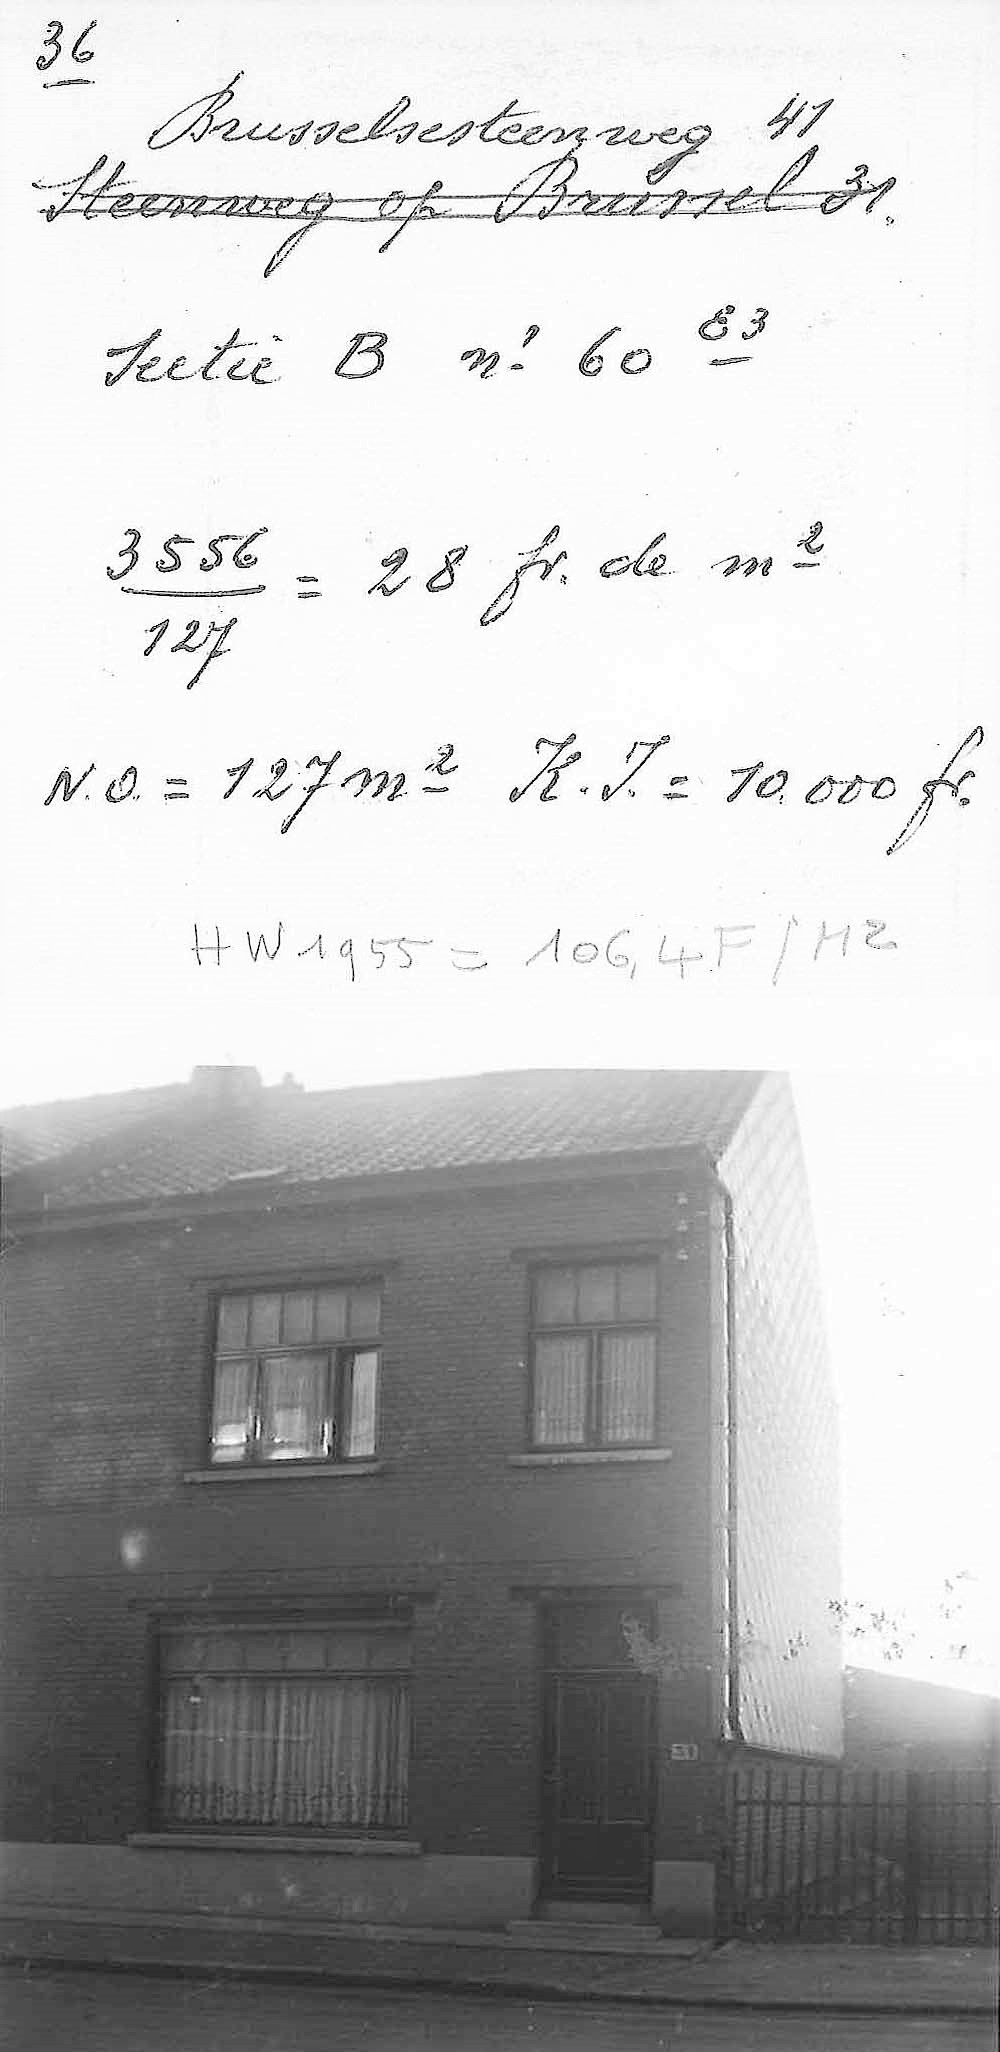 36
Brusselsesteenweg 41
Steenweg op Brussel 31.
Sectie B nr 60 E3
3556
127
= 28 fr. de m²
N.O. = 127 m² K.I. = 10.000 fr.
HW 1955 = 106,4 F/M2
31